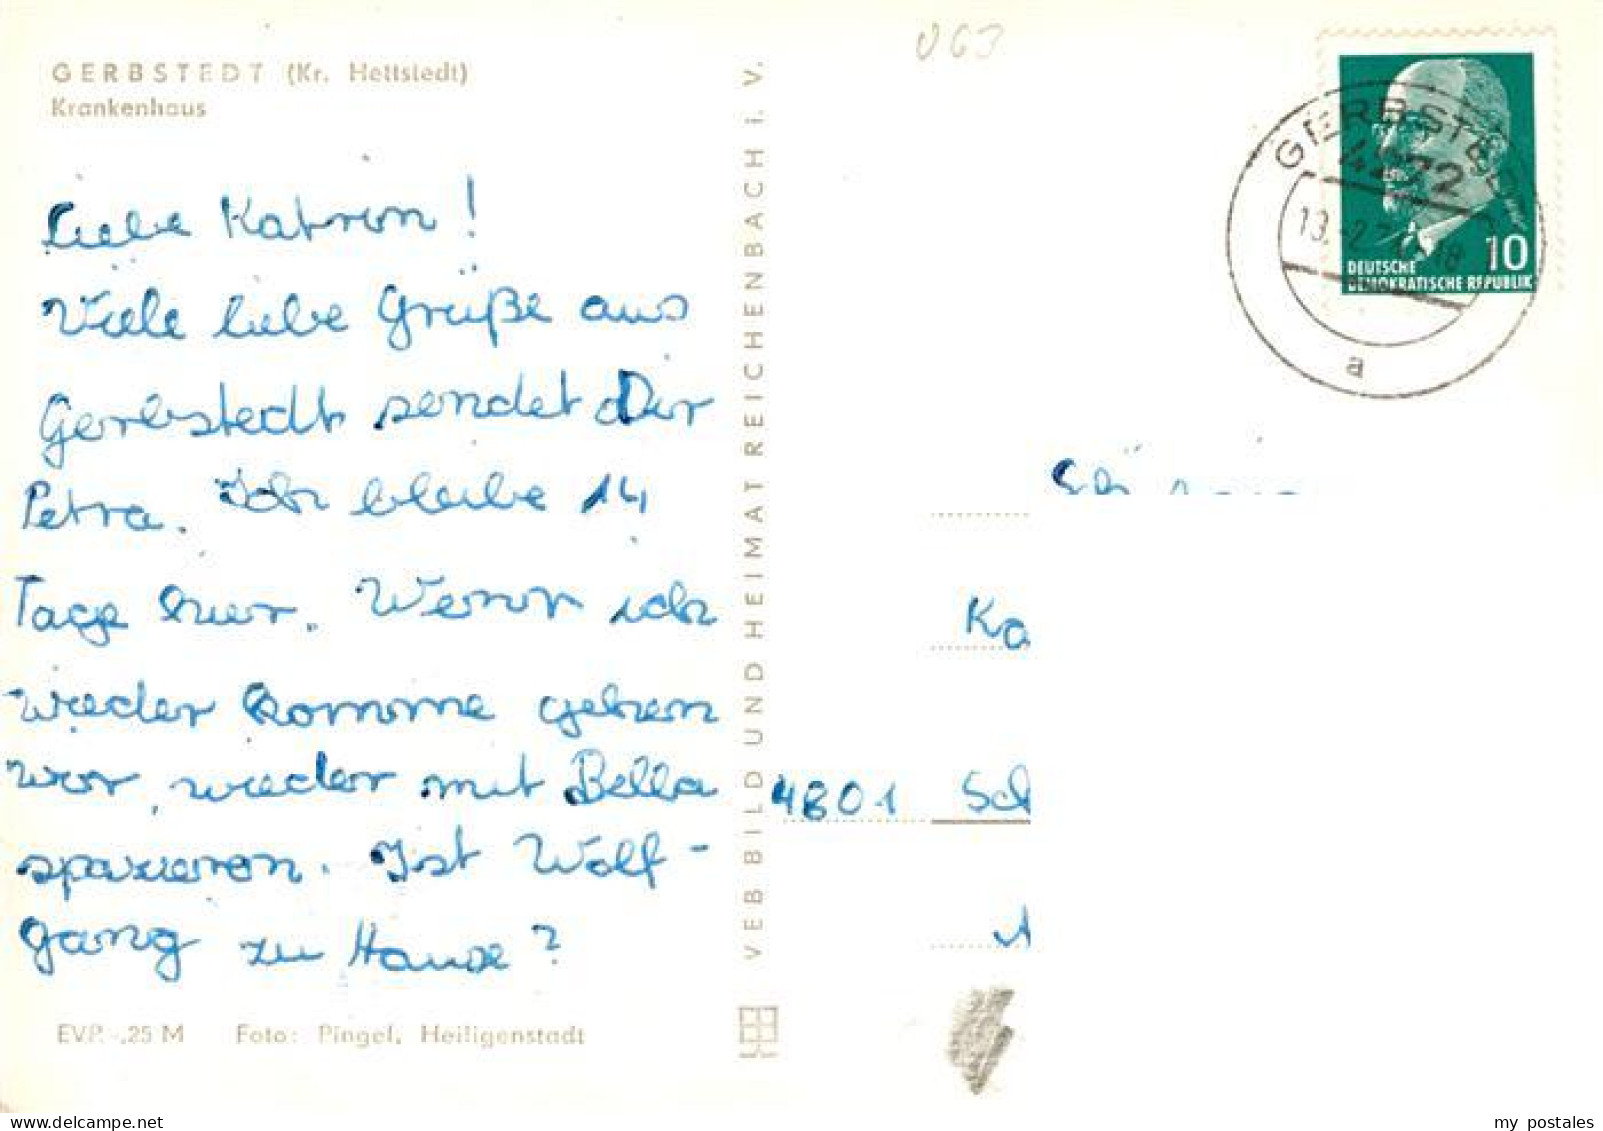 GERBSTEDT (Kr. Hettstedt)
Krankenhaus
Liebe Katron!
Viele liebe Grüße aus
Gerbstedt sendet Dir
Petra. Ich bleibe 14
Tage hier. Wenn ich
wieder komme gehen
wir, wieder mit Bella
spazieren. Ist Wolf-
gang zu Hause?
EVP. -,25 M Foto: Pingel, Heiligenstadt
VEB BILD UND HEIMAT REICHENBACH i. V.
063
GERBSTEDT
4272
13.-2.7
18
a
10
DEUTSCHE
DEMOKRATISCHE REPUBLIK
Ka
4801 Sch
delcampe.net
my_postales